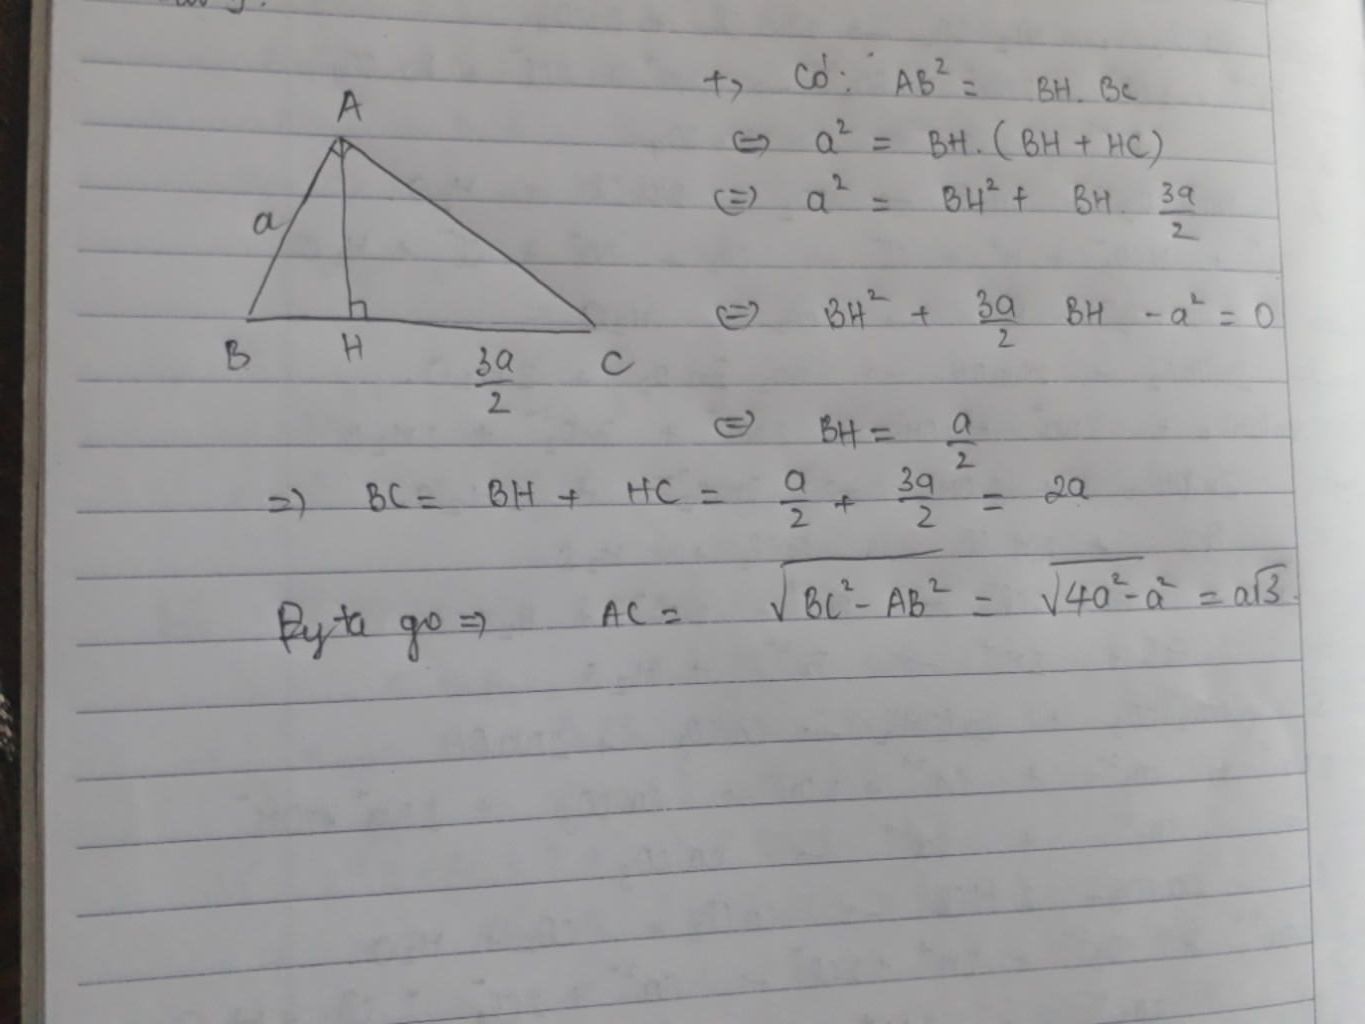 +> Có: AB² = BH. BC
⇔ a² = BH.(BH + HC)
⇔ a² = BH² + BH. 3a/2
⇔ BH² + 3a/2 BH - a² = 0
⇔ BH = a/2
A
a
B H C
3a/2
=> BC = BH + HC = a/2 + 3a/2 = 2a
Pyta go => AC = √(BC² - AB²) = √(4a² - a²) = a√3.